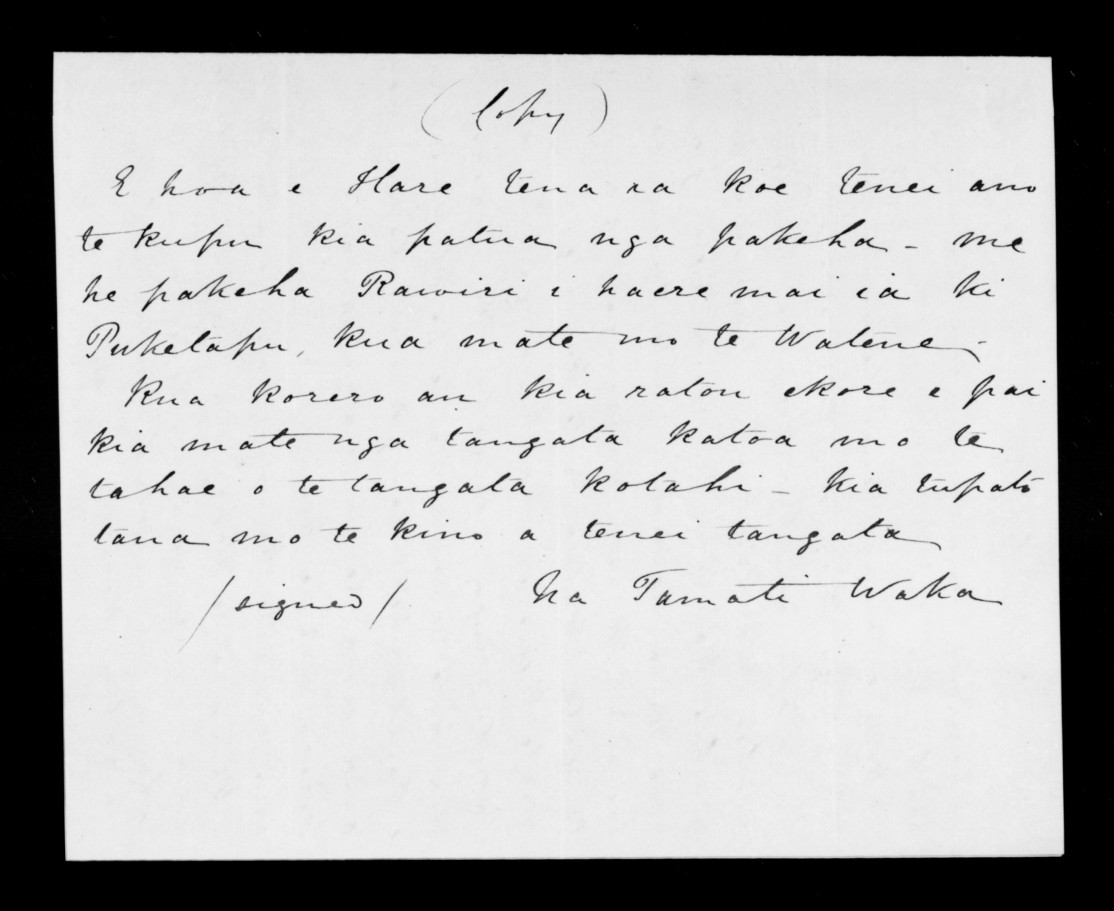 (Copy)
E hoa e Hare tena ra koe tenei ano
te kupu kia patua nga pakeha - me
he pakeha Rawiri i haere mai ia ki
Puketapu, kua mate mo te Watene -
Kua korero au kia ratou ekore e pai
kia mate nga tangata katoa mo te
tahae o te tangata kotahi - kia tupato
tana mo te kino a tenei tangata
/signed/ Na Tamati Waka